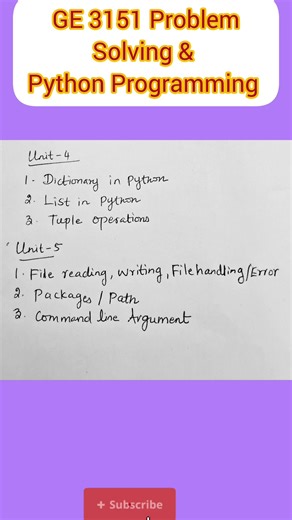 GE 3151 Problem
Solving &
Python Programming
Unit-4
1. Dictionary in Python
2. List in Python
3. Tuple operations
Unit-5
1. File reading, writing, File handling/Error
2. Packages / Path
3. Command line Argument
+ Subscribe